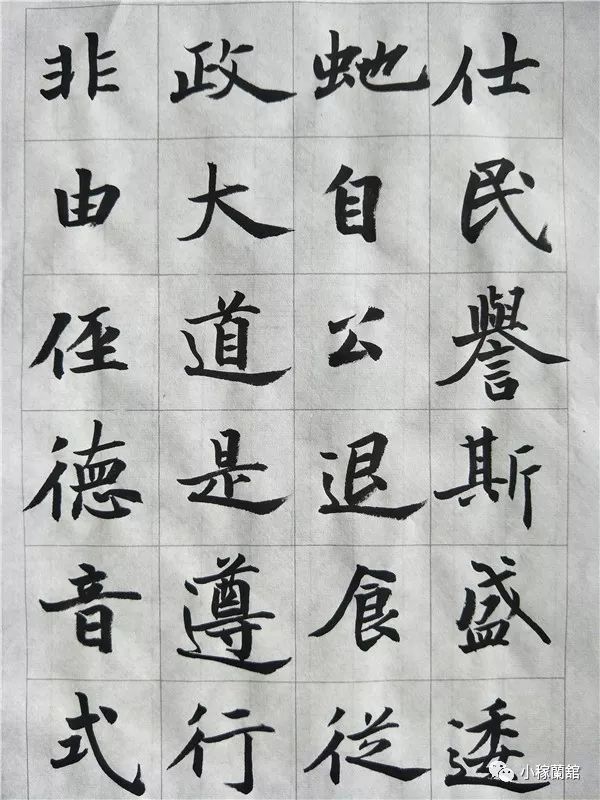 仕民譽斯盛逶
虵自公退食従
政大道是遵行
非由俓德音式
小稼蘭舘